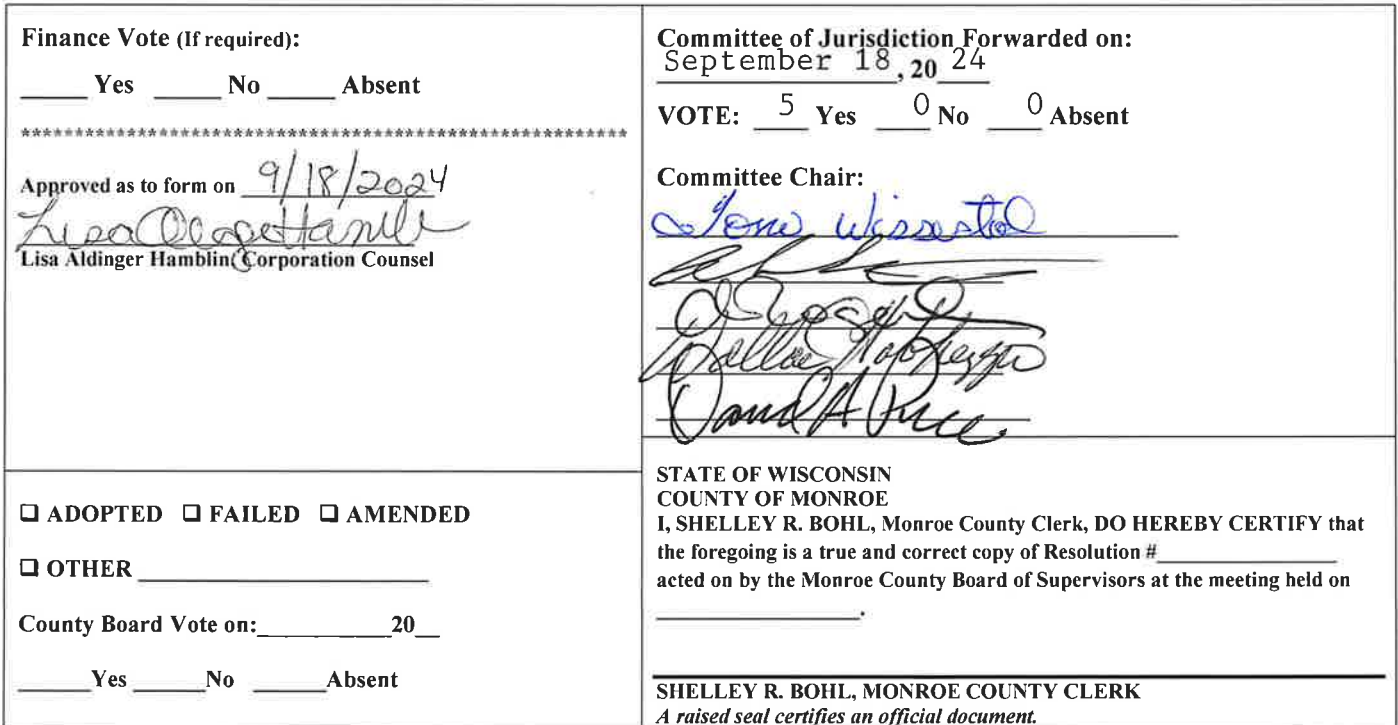 Finance Vote (If required):
____ Yes ____ No ____ Absent
*********************************************************
Approved as to form on 9/18/2024
Lisa Aldinger Hamblin, Corporation Counsel
☐ ADOPTED ☐ FAILED ☐ AMENDED
☐ OTHER ____
County Board Vote on: ____ 20__
____ Yes ____ No ____ Absent
Committee of Jurisdiction Forwarded on:
September 18, 20 24
VOTE: 5 Yes 0 No 0 Absent
Committee Chair:
Toni Wissestad
David A Pierce
STATE OF WISCONSIN
COUNTY OF MONROE
I, SHELLEY R. BOHL, Monroe County Clerk, DO HEREBY CERTIFY that
the foregoing is a true and correct copy of Resolution # ____
acted on by the Monroe County Board of Supervisors at the meeting held on
____.
SHELLEY R. BOHL, MONROE COUNTY CLERK
A raised seal certifies an official document.